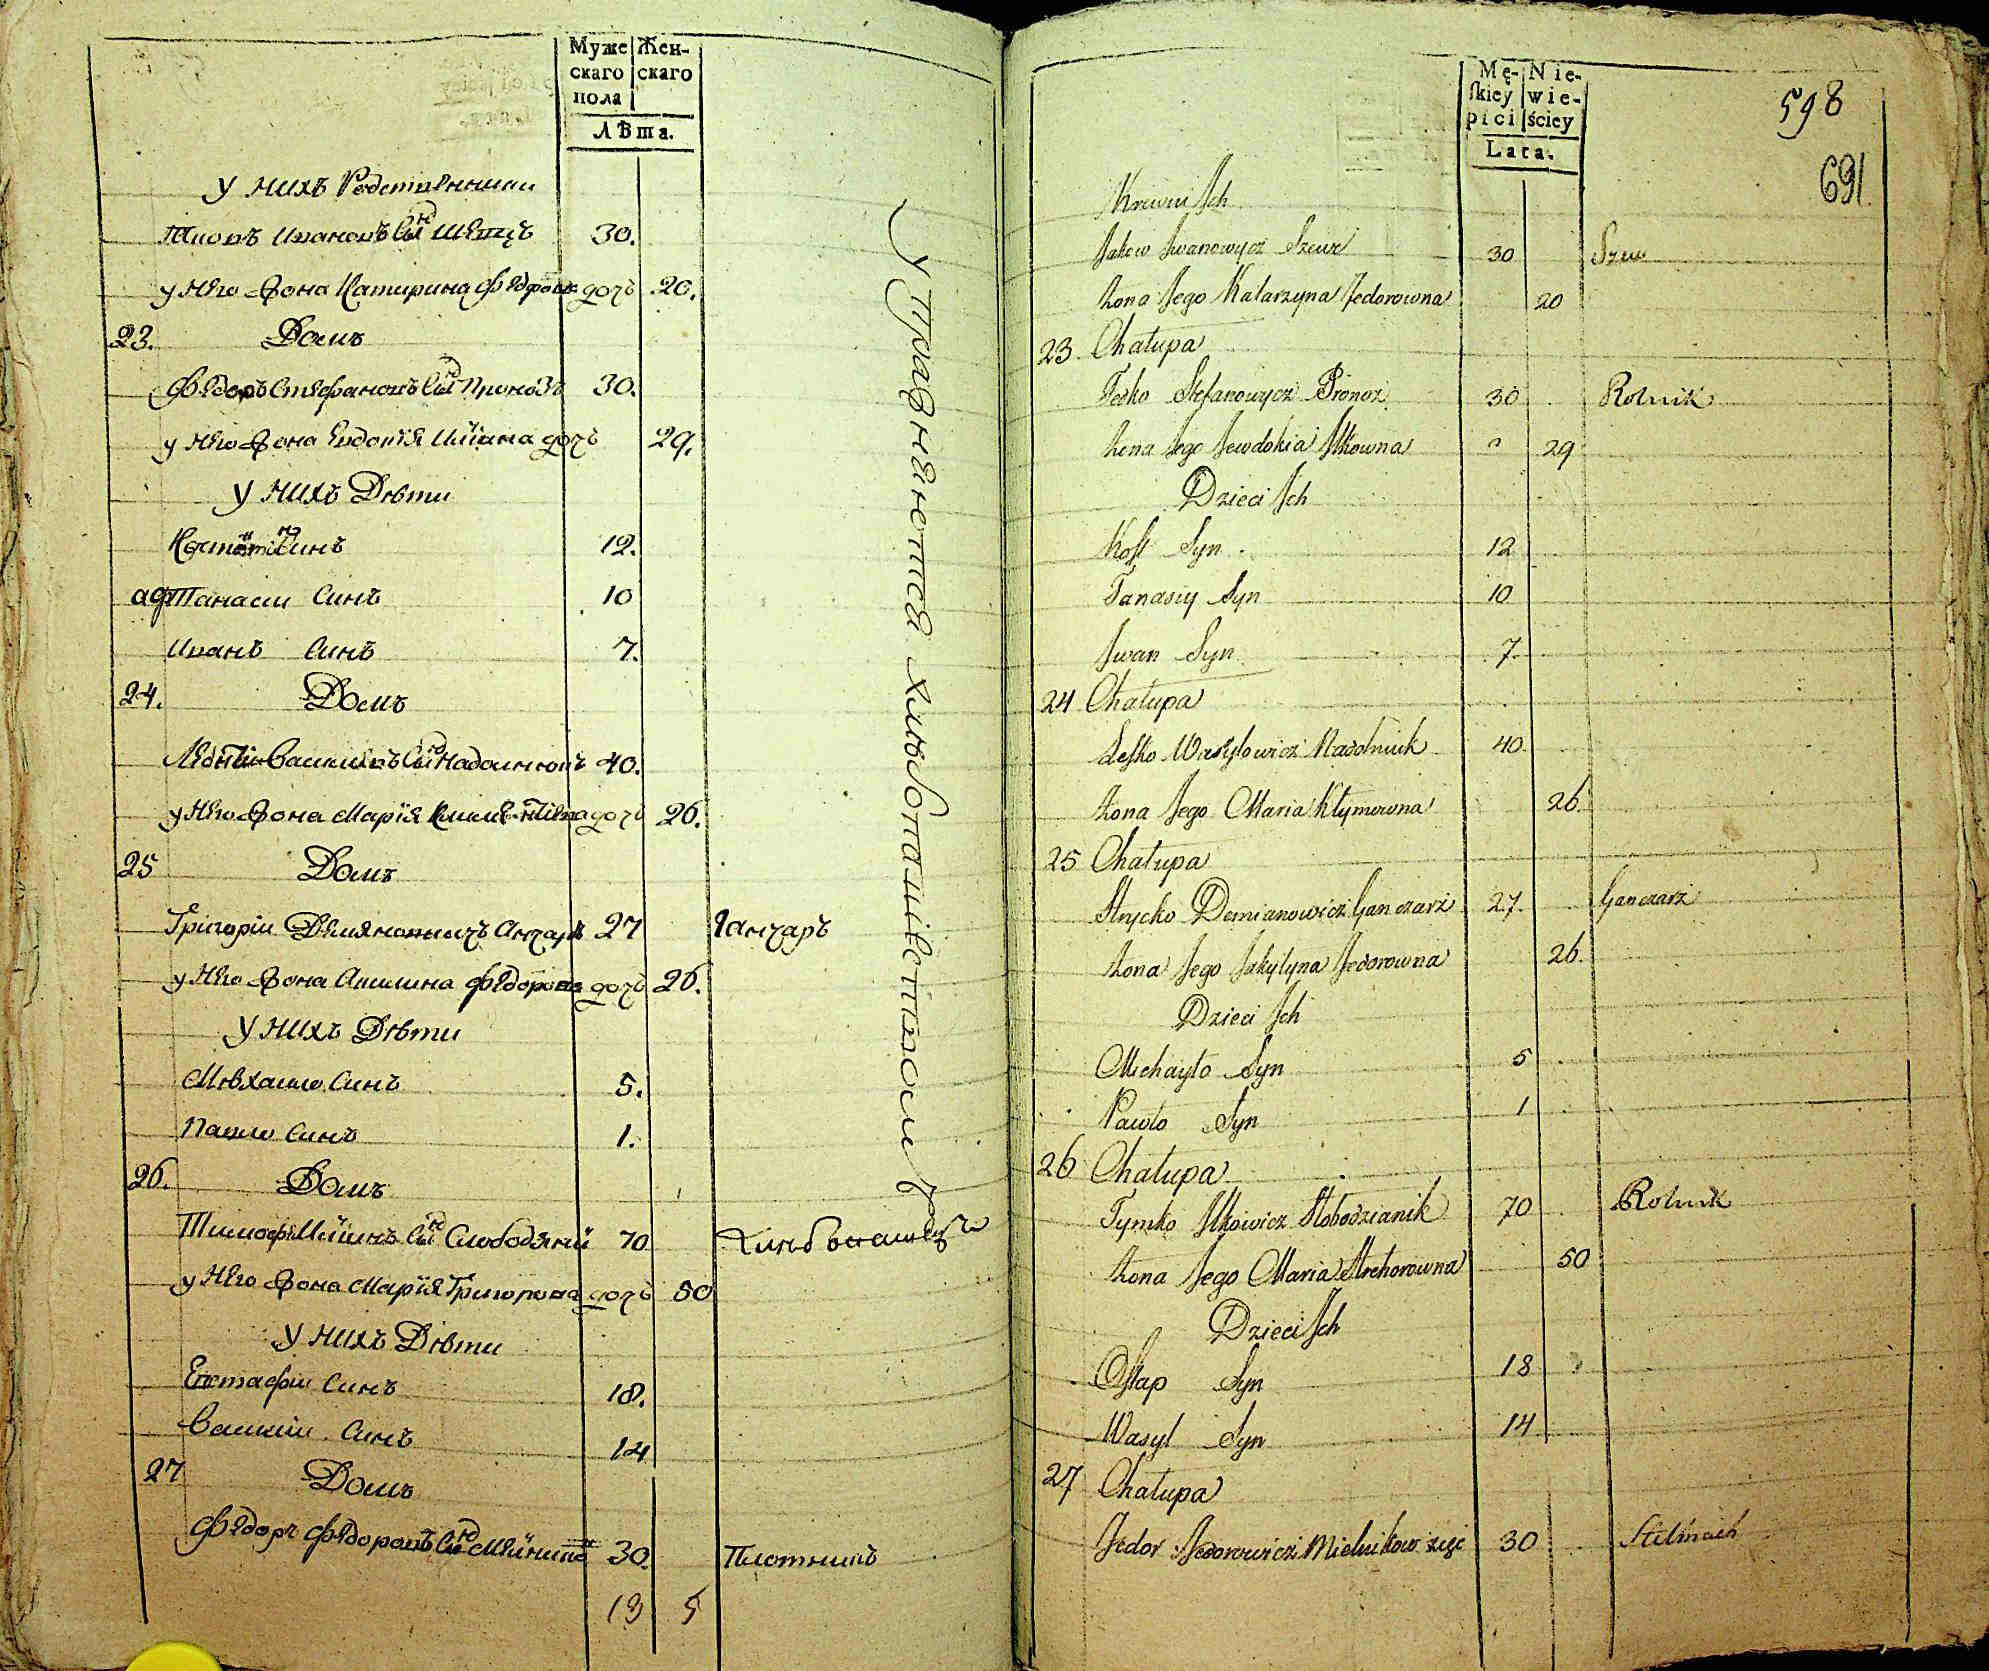 Муже Жен-
скаго скаго
пола
Лѣта.
у нихъ Родственники
Яковъ Ивановъ Сынъ Швецъ 30.
у Него Жона Катирина Федорова дочъ 20.
23. Домъ
Федоръ Стефановъ Сынъ Пронозъ 30.
у Него Жона Евдокія Иліина дочъ 29.
у нихъ Дѣти
Синъ 12.
афтанасіи Синъ 10
Иванъ Синъ 7.
24. Домъ
Леонтіи Васильевъ Сынъ 40.
у Него Жона Марія дочъ 26.
25 Домъ
Григоріи Демяновичъ 27 Ганчаръ
у Него Жона Акилина Федорова дочъ 26.
у нихъ Дѣти
Мѣхаило Синъ 5.
Павло Синъ 1.
26. Домъ
Тимофѣи Иліинъ Сынъ Слободяний 70
у Него Жона Марія Григорова дочъ 50
у нихъ Дѣти
Евстафіи Синъ 18.
Василіи Синъ 14
27 Домъ
Федоръ Федоровъ Сынъ 30. Плотникъ
13 5
Упражняются хлѣбопашествомъ
Mę- Nie-
skiey wie-
pici ściey
Lata.
598
691
Krewni Ich
Jakow Iwanowycz Szewc 30 Szewc
Zona Jego Katarzyna Fedorowna 20
23 Chałupa
Fesko Stefanowycz Pronoz 30 Rolnik
Zona Jego Jewdokia Ilkowna 29
Dzieci Ich
Kost Syn 12
Tanasiy Syn 10
Iwan Syn 7
24 Chałupa
Lesko Wasylowicz Nadolniuk 40
Zona Jego Maria Kłymowna 26
25 Chałupa
Hrycko Demianowicz Ganczarz 27 Ganczarz
Zona Jego Jakylyna Fedorowna 26
Dzieci Ich
Michayło Syn 5
Pawło Syn 1
26 Chałupa
Tymko Ilkowicz Słobodzianik 70 Rolnik
Zona Jego Maria Hrehorowna 50
Dzieci Ich
Ostap Syn 18
Wasyl Syn 14
27 Chałupa
Fedor Fedorowicz Mielnikow zięć 30 Stelmach